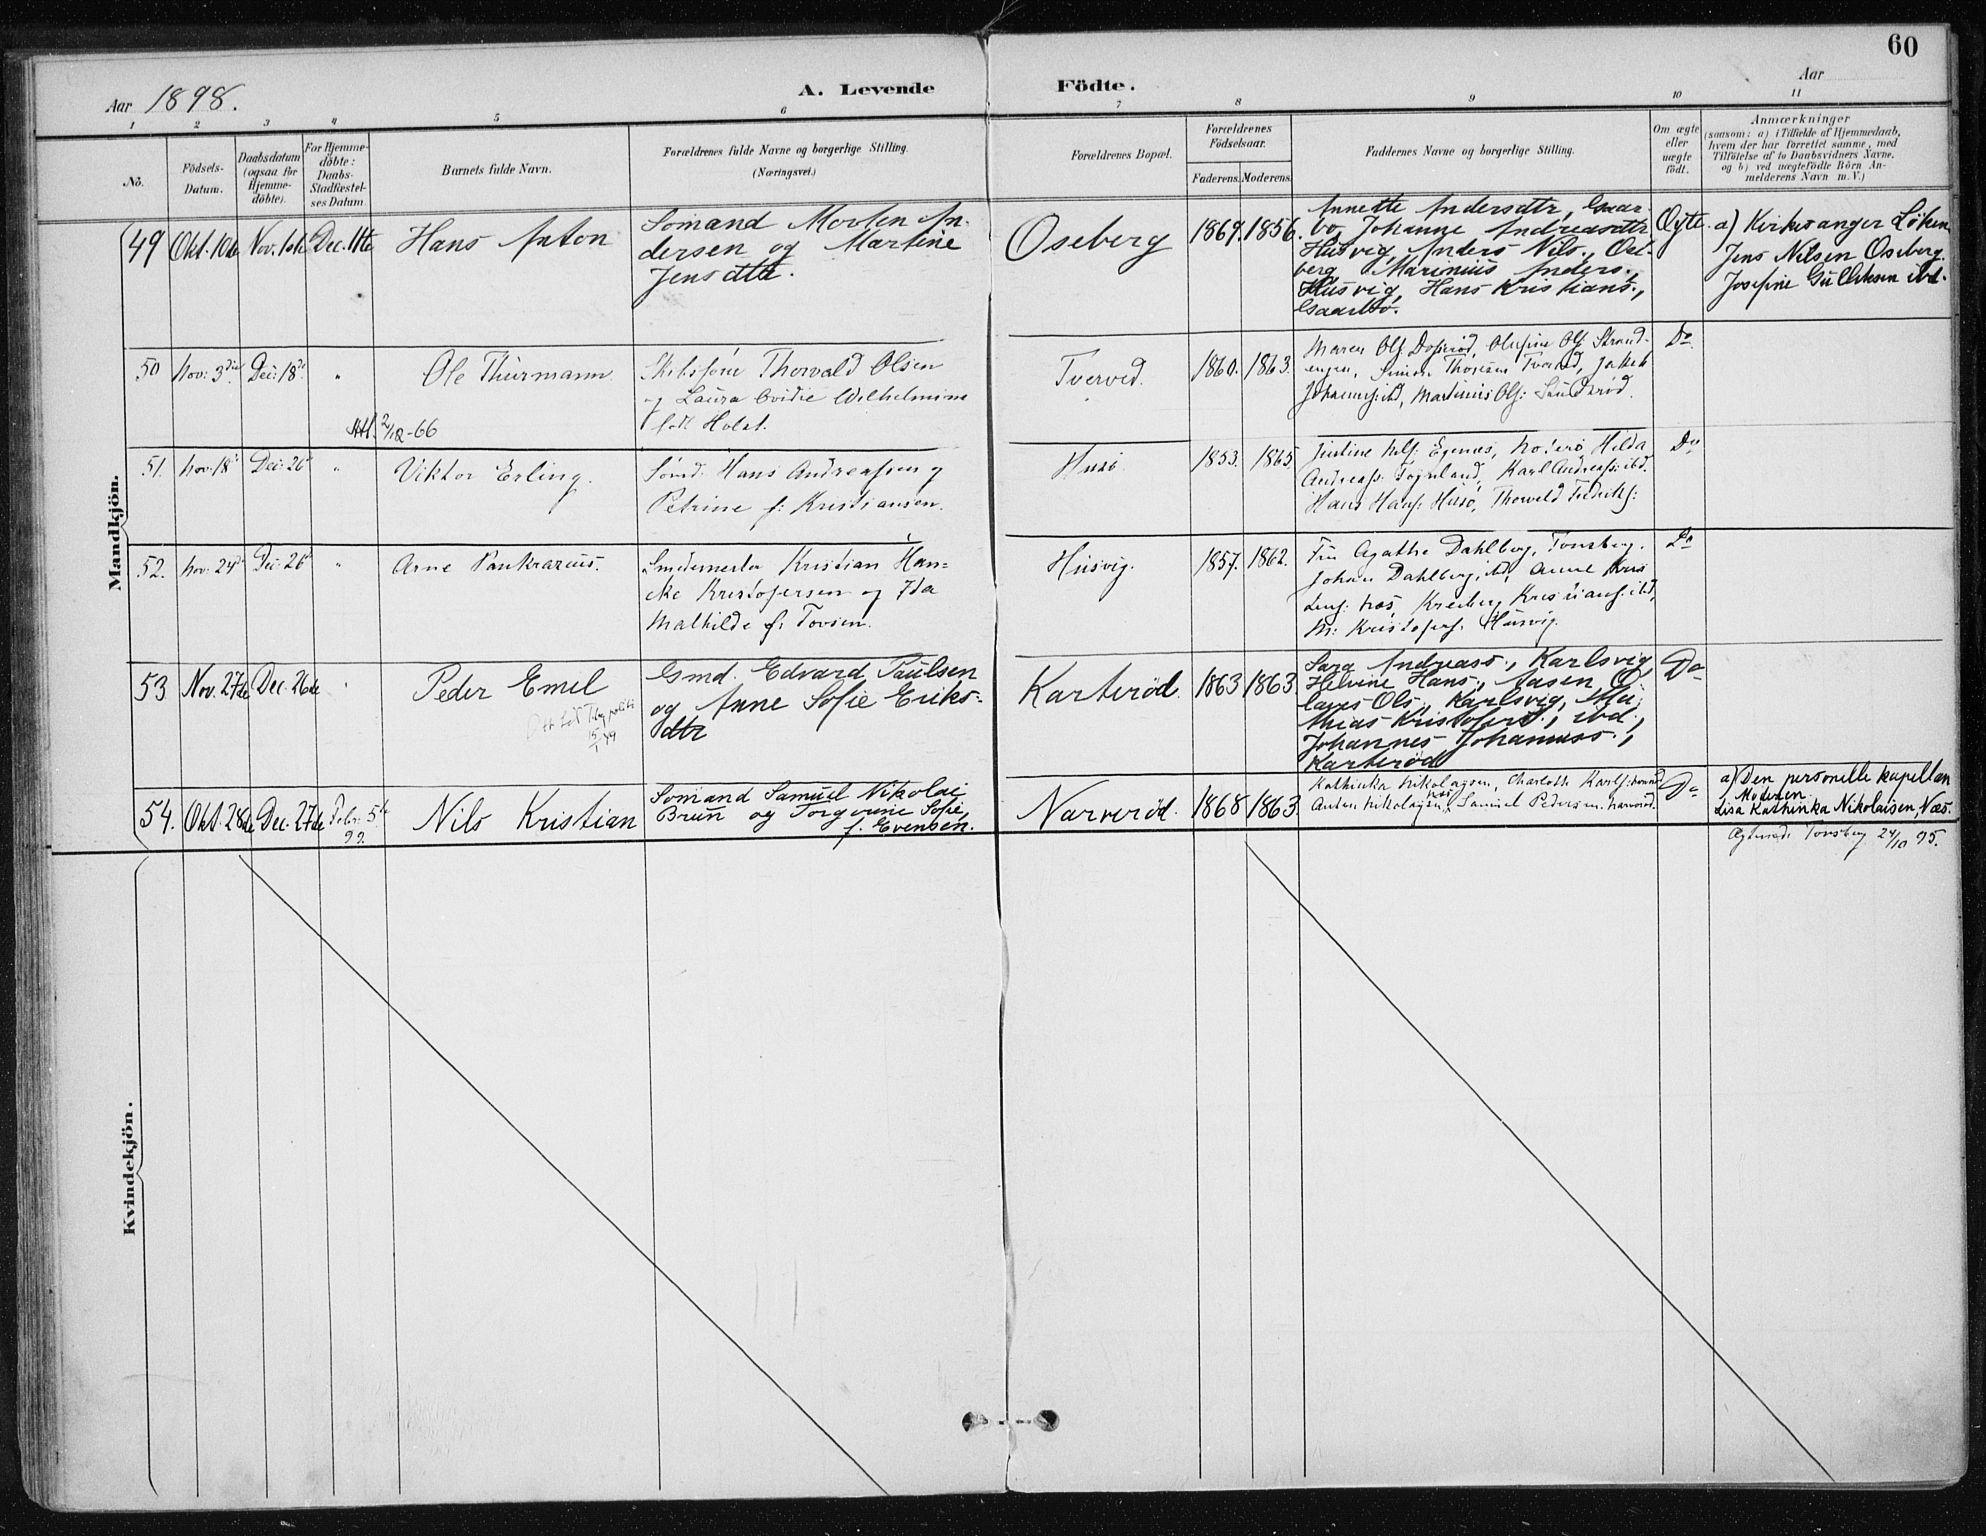 60
Aar 1898.
A. Levende
Födte.
Aar
1 2 3 4 5 6 7 8 9 10 11
No.
Födsels-
Datum.
Daabsdatum
(ogsaa for
Hjemme-
döbte).
For Hjemme-
döbte:
Daabs-
Stadfæstel-
ses Datum.
Barnets fulde Navn.
Forældrenes fulde Navne og borgerlige Stilling.
(Næringsvei.)
Forældrenes Bopæl.
Forældrenes
Födselsaar.
Faderens. Moderens.
Faddernes Navne og borgerlige Stilling.
Om ægte
eller
uægte
födt.
Anmærkninger
(saasom: a) i Tilfælde af Hjemmedaab,
hvem der har forrettet samme, med
Tilföielse af to Daabsvidners Navne,
og b) ved uægtefödte Börn An-
melderens Navn m. V.)
Mandkjön.
49 Okt. 10de Nov. 1ste Dec. 11te Hans Anton
Sømand Morten An-
dersen og Martine
Jensdtr.
Oseberg 1869. 1856.
Annette Andersdtr, Gaar-
bo, Johanne Andreasdtr
Husvig, Anders Nils., Ose-
berg, Marinius Anders.,
Husvig, Hans Kristians.,
Gaarbo.
Ægte.
a) Kirkesanger Løken
Jens Nilsen Oseberg.
Josefine Gulliksen ibd.
50 Nov: 3die Dec: 18de " Ole Thurmann
Att. 2/12-66
Skibsføre Thorvald Olsen
og Laura Ovidie Wilhelmine
født Holst.
Tverved. 1860. 1863.
Maren Ols: Olufine Ols: Strand-
engen, Simon Tverved, Jakob
Johannes: ibd, Martinius Ols:
Do
51. Nov. 18de Dec: 26de " Viktor Erling.
Sømd. Hans Andreassen og
Petrine f: Kristiansen.
Husø 1853. 1865.
Justine Nils: Egenes, Nøterø, Hilda
Andreass: Føynland, Karl Andreass: ibd.
Hans Hans: Husø, Thorvald Fredriks:
Do
52. Nov. 24de Dec: 26de " Arne Pankrazius.
Smedemester Kristian Han-
cke Kristofersen og Ida
Mathilde f: Tovsen.
Husvig. 1857. 1862.
Fru Agathe Dahlberg, Tønsberg.
Johan Dahlberg, ibd, Anne Kris
tens: Næs, Kristians: ibd,
M: Kristofers: Husvig.
Do
53 Nov. 27de Dec. 26de " Peder Emil
15/1 49
Gmd. Edvard Paulsen
og Anne Sofie Eriks-
dtr
Karterød. 1863 1863
Sara Andreass., Karlsvig,
Helvine Hans., Aasen, O-
laves Ols., Karlsvig, Ma-
thias Kristofers., ibd.,
Johannes Johanness.,
Karterød
Do
54. Okt. 28de Dec. 27de Febr. 5te
99.
Nils Kristian
Sømand Samuel Nikolai
Brun og Torgerine Sofie
f. Evensen.
Narverød. 1868 1863.
Kathinka Nikolaysen, Charlotte Karls:
Anton Nikolaysen, Næs, Samuel Pedersen. Narverød.
Do
a) Den personelle kapellan
Madsen.
Lisa Kathinka Nikolaisen, Næs.
Tønsberg 24/10 95.
Kvindekjön.